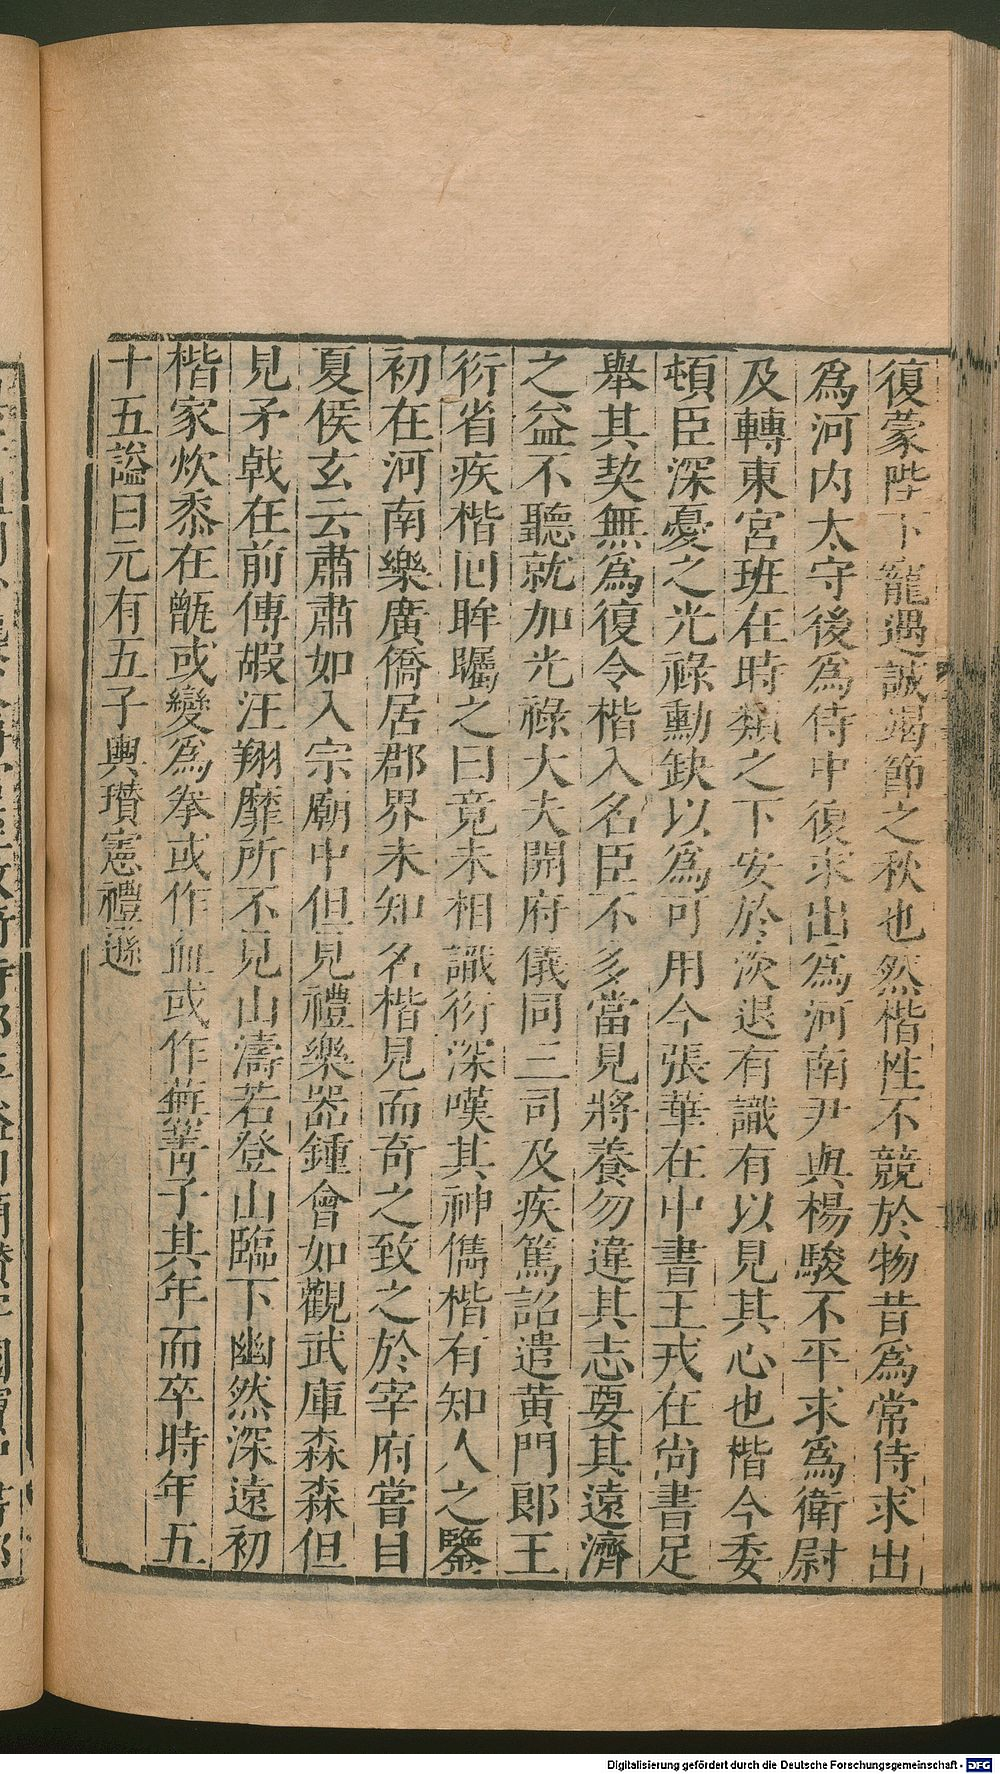 復蒙陛下寵遇誠竭節之秋也然楷性不競於物昔爲常侍求出
爲河内太守後爲侍中復求出爲河南尹與楊駿不平求爲衛尉
及轉東宮班在時類之下安於淡退有識有以見其心也楷今委
頓臣深憂之光祿勳缺以爲可用今張華在中書王戎在尚書足
舉其契無爲復令楷入名臣不多當見將養勿違其志要其遠濟
之益不聽就加光祿大夫開府儀同三司及疾篤詔遣黄門郎王
衍省疾楷回眸矚之曰竟未相識衍深嘆其神儁楷有知人之鑒
初在河南樂廣僑居郡界未知名楷見而奇之致之於宰府嘗目
夏侯玄云肅肅如入宗廟中但見禮樂器鍾會如觀武庫森森但
見矛戟在前傅嘏汪翔靡所不見山濤若登山臨下幽然深遠初
楷家炊黍在甑或變爲拳或作血或作蕪菁子其年而卒時年五
十五謚曰元有五子輿瓚憲禮遜
Digitalisierung gefördert durch die Deutsche Forschungsgemeinschaft - DFG